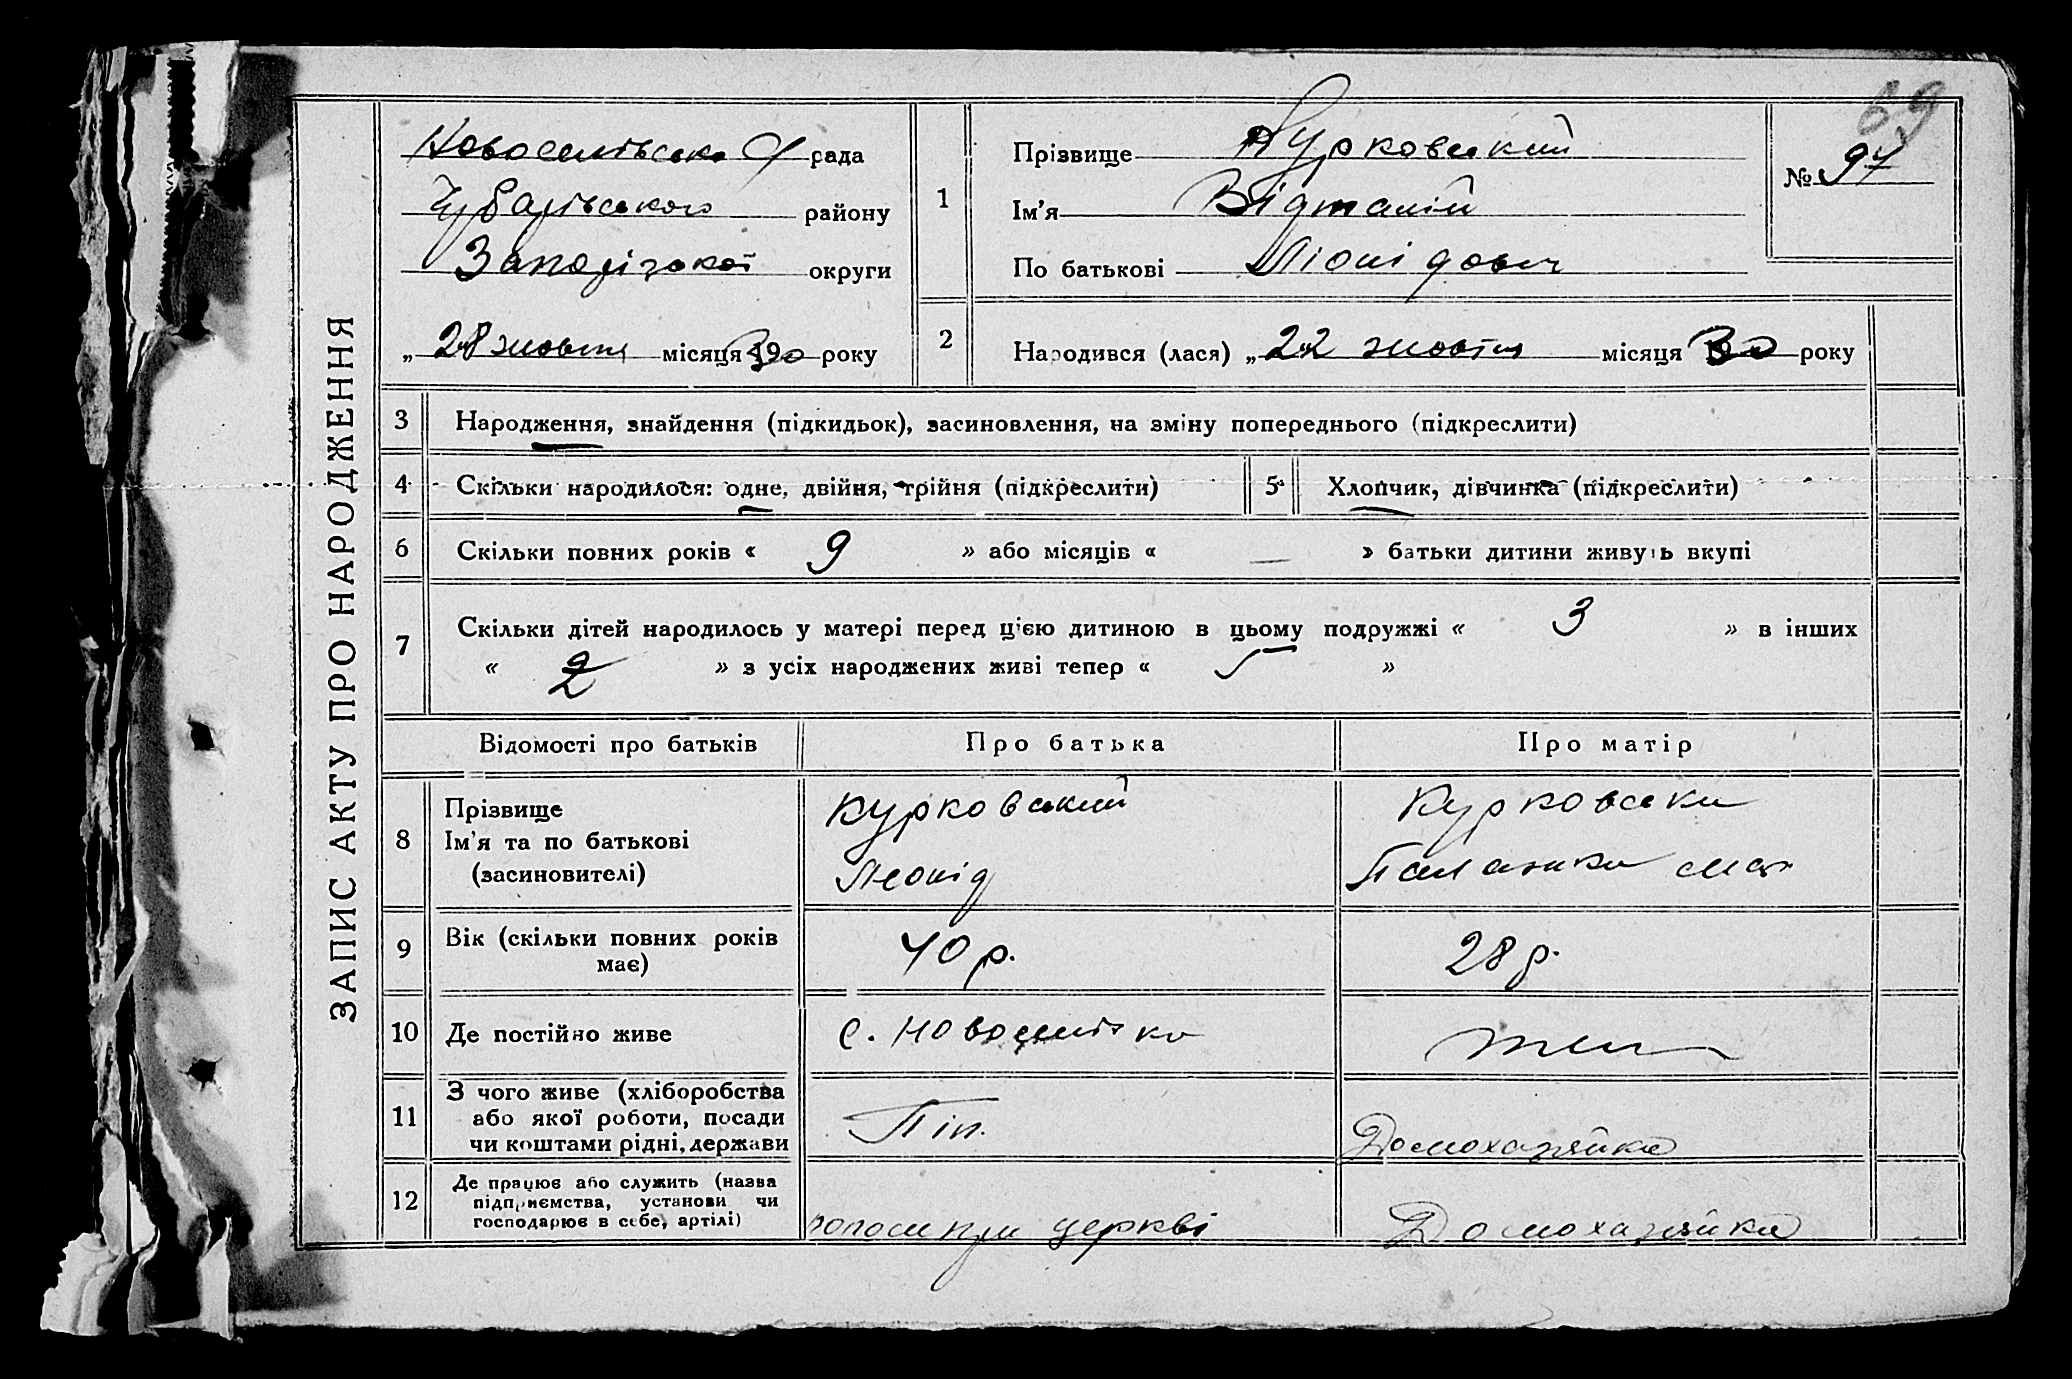 69
ЗАПИС АКТУ ПРО НАРОДЖЕННЯ
Новоселівська С/ рада
Чубарівського району
Запорізької округи
„ 28 жовтня місяця 1930 року
1
Прізвище Курковський
Ім'я Відталій
По батькові Ліонідович
№ 97
2
Народився (лася) „ 22 жовтня місяця 30 року
3 Народження, знайдення (підкидьок), засиновлення, на зміну попереднього (підкреслити)
4 Скільки народилося: одне, двійня, трійня (підкреслити)
5 Хлопчик, дівчинка (підкреслити)
6 Скільки повних років « 9 » або місяців « — » батьки дитини живуть вкупі
7 Скільки дітей народилось у матері перед цією дитиною в цьому подружжі « 3 » в інших
« 2 » з усіх народжених живі тепер « »
Відомості про батьків
Про батька
Про матір
8
Прізвище
Ім'я та по батькові
(засиновителі)
Курковський
Леонід
Курковська
Палажка
9
Вік (скільки повних років
має)
40 р.
28 р.
10 Де постійно живе
с. Новоселівка
11
З чого живе (хліборобства
або якої роботи, посади
чи коштами рідні, держави
Піп.
Домохазяйка
12
Де працює або служить (назва
підприємства, установи чи
господарює в себе, артілі)
попом при церкві
Домохазяйка